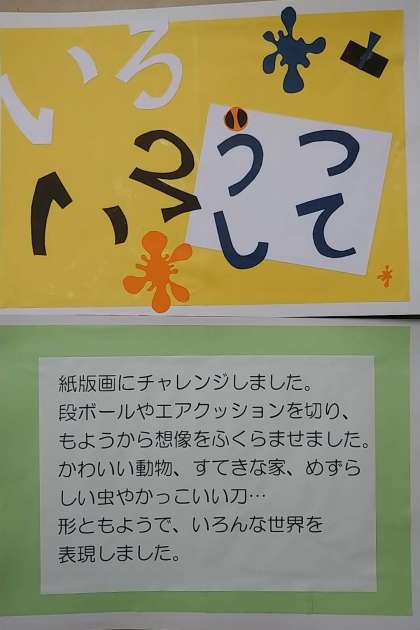 いろ
いろ
うつ
して
紙版画にチャレンジしました。
段ボールやエアクッションを切り、
もようから想像をふくらませました。
かわいい動物、すてきな家、めずら
しい虫やかっこいい刀…
形ともようで、いろんな世界を
表現しました。